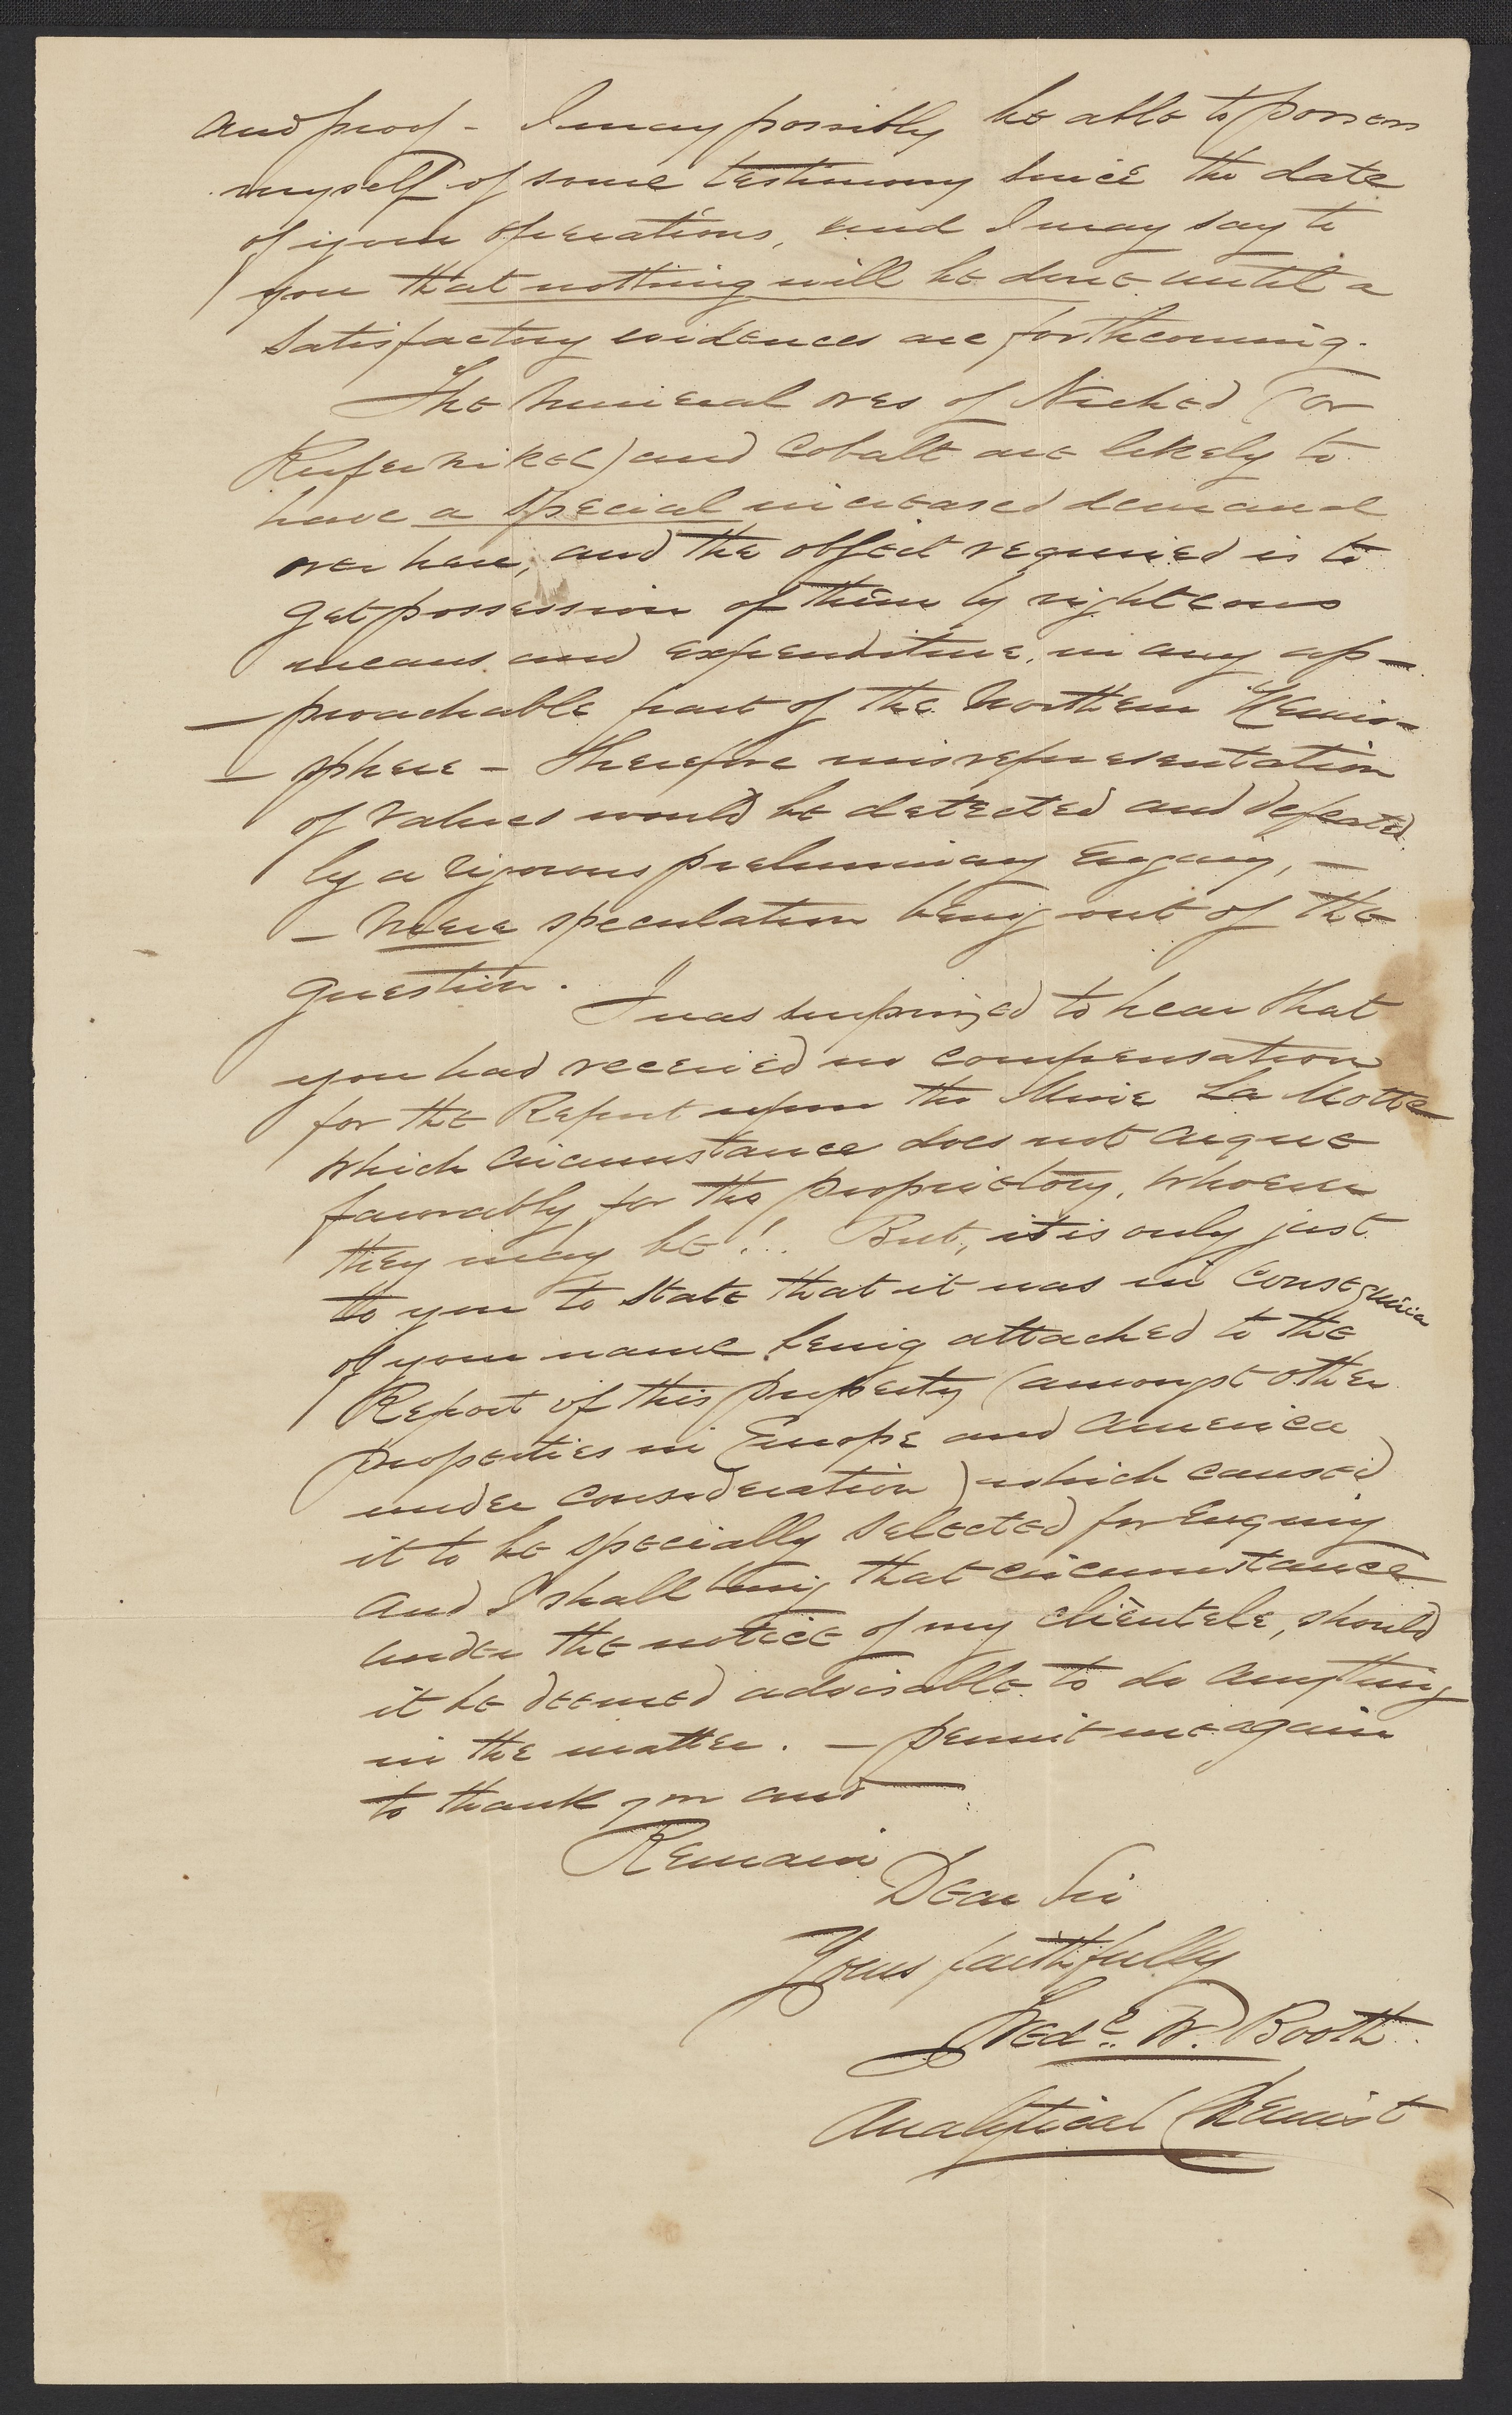 and proof - I may possibly be able to possess
myself of some testimony since the date
of your operations, and I may say to
you that nothing will be done until a
satisfactory evidences are forthcoming.
The mineral ores of Nickel (or
Kupfernikel) and Cobalt are likely to
have a special increased demand
over here, and the object required is to
get possession of them by righteous
means and expenditure, in any ap-
-proachable part of the Northern Hemis-
-phere - Therefore misrepresentation
of values would be detected and defeated
by a rigorous preliminary Enquiry, -
- mere speculation being out of the
question.
I was surprized to hear that
you had received no compensation
for the Report upon the Mine La Motte
which circumstance does not argue
favorably for the proprietory, whoever
they may be! But, it is only just
to you to state that it was in consequence
of your name being attached to the
Report of this property (amongst other
properties in Europe and America
under consideration) which caused
it to be specially selected for Enquiry
and I shall bring that circumstance
under the notice of my clientele, should
it be deemed advisable to do anything
in the matter. - permit me again
to thank you and
Remain
Dear Sir
Yours faithfully
Fredc. W. Booth
Analytical Chemist